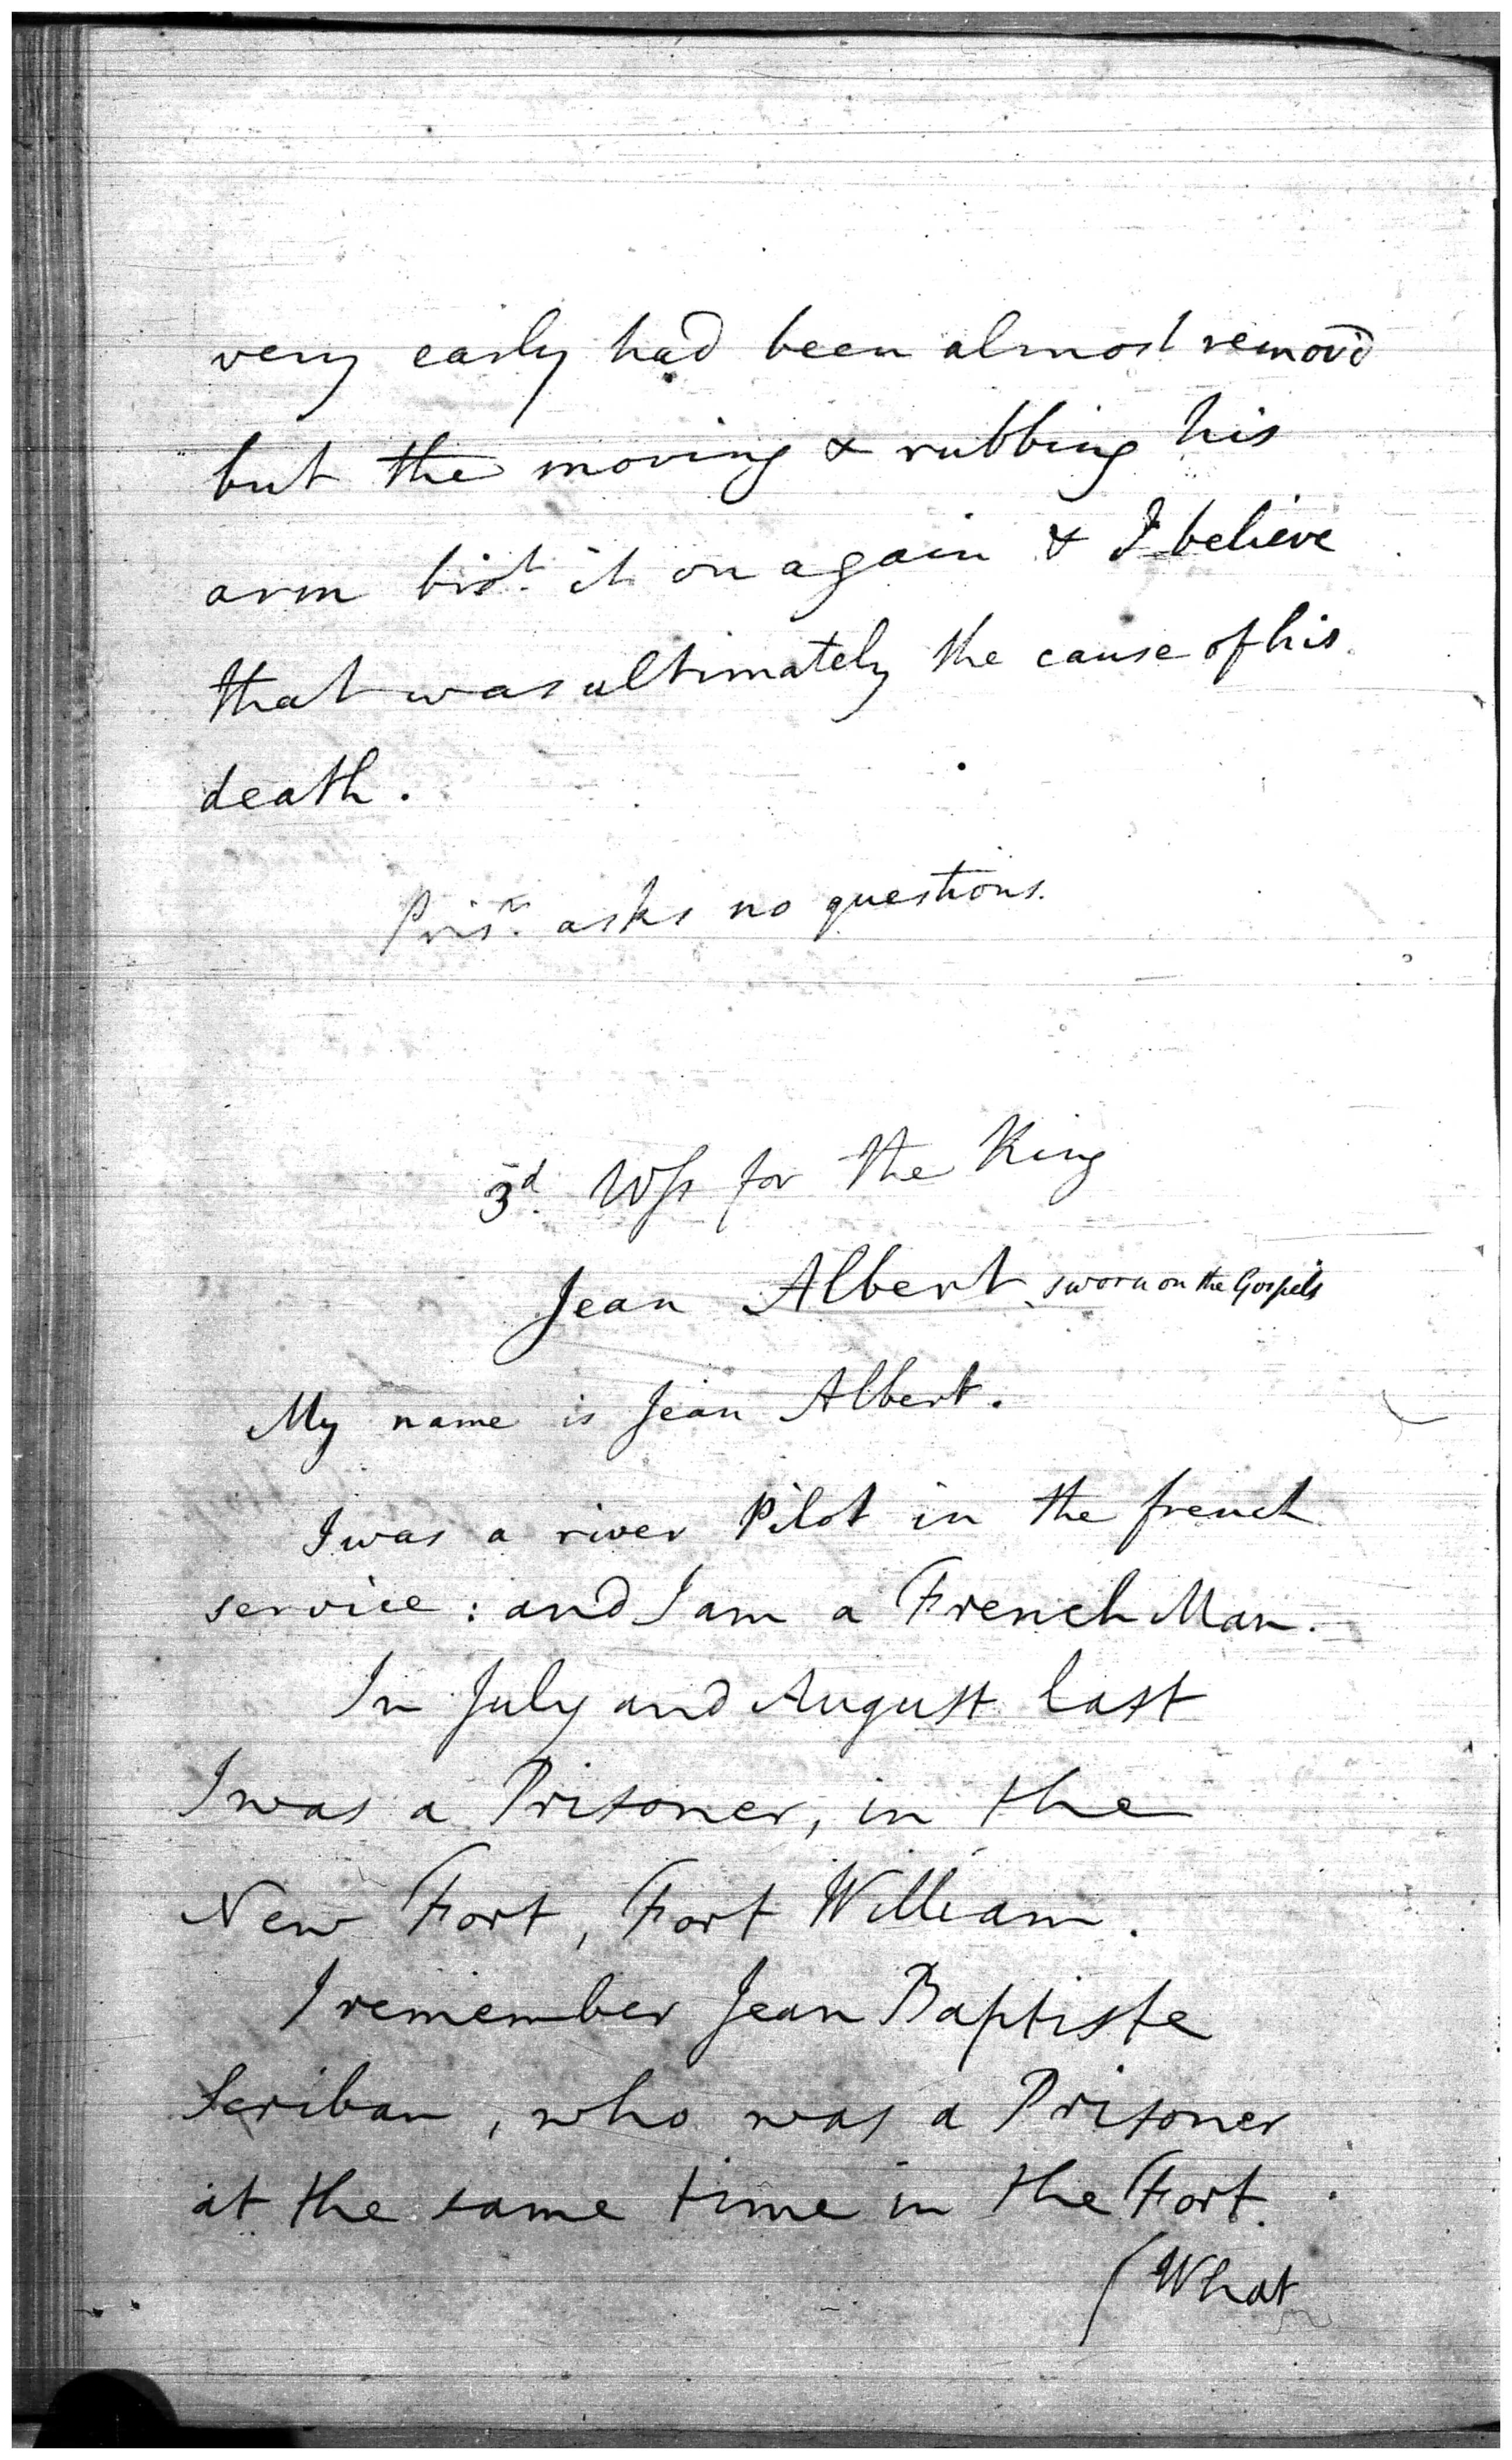 very early had been almost remov'd
but the moving & rubbing his
arm brot. it on again & I believe
that was ultimately the cause of his
death.
Prisr. asks no questions.
3d. Wss for the King
Jean Albert sworn on the Gospels
My name is Jean Albert.
I was a river Pilot in the french
service : and I am a French Man.
In July and August last
I was a Prisoner, in the
New Fort, Fort William.
I remember Jean Baptiste
Scriban, who was a Prisoner
at the same time in the Fort.
(What